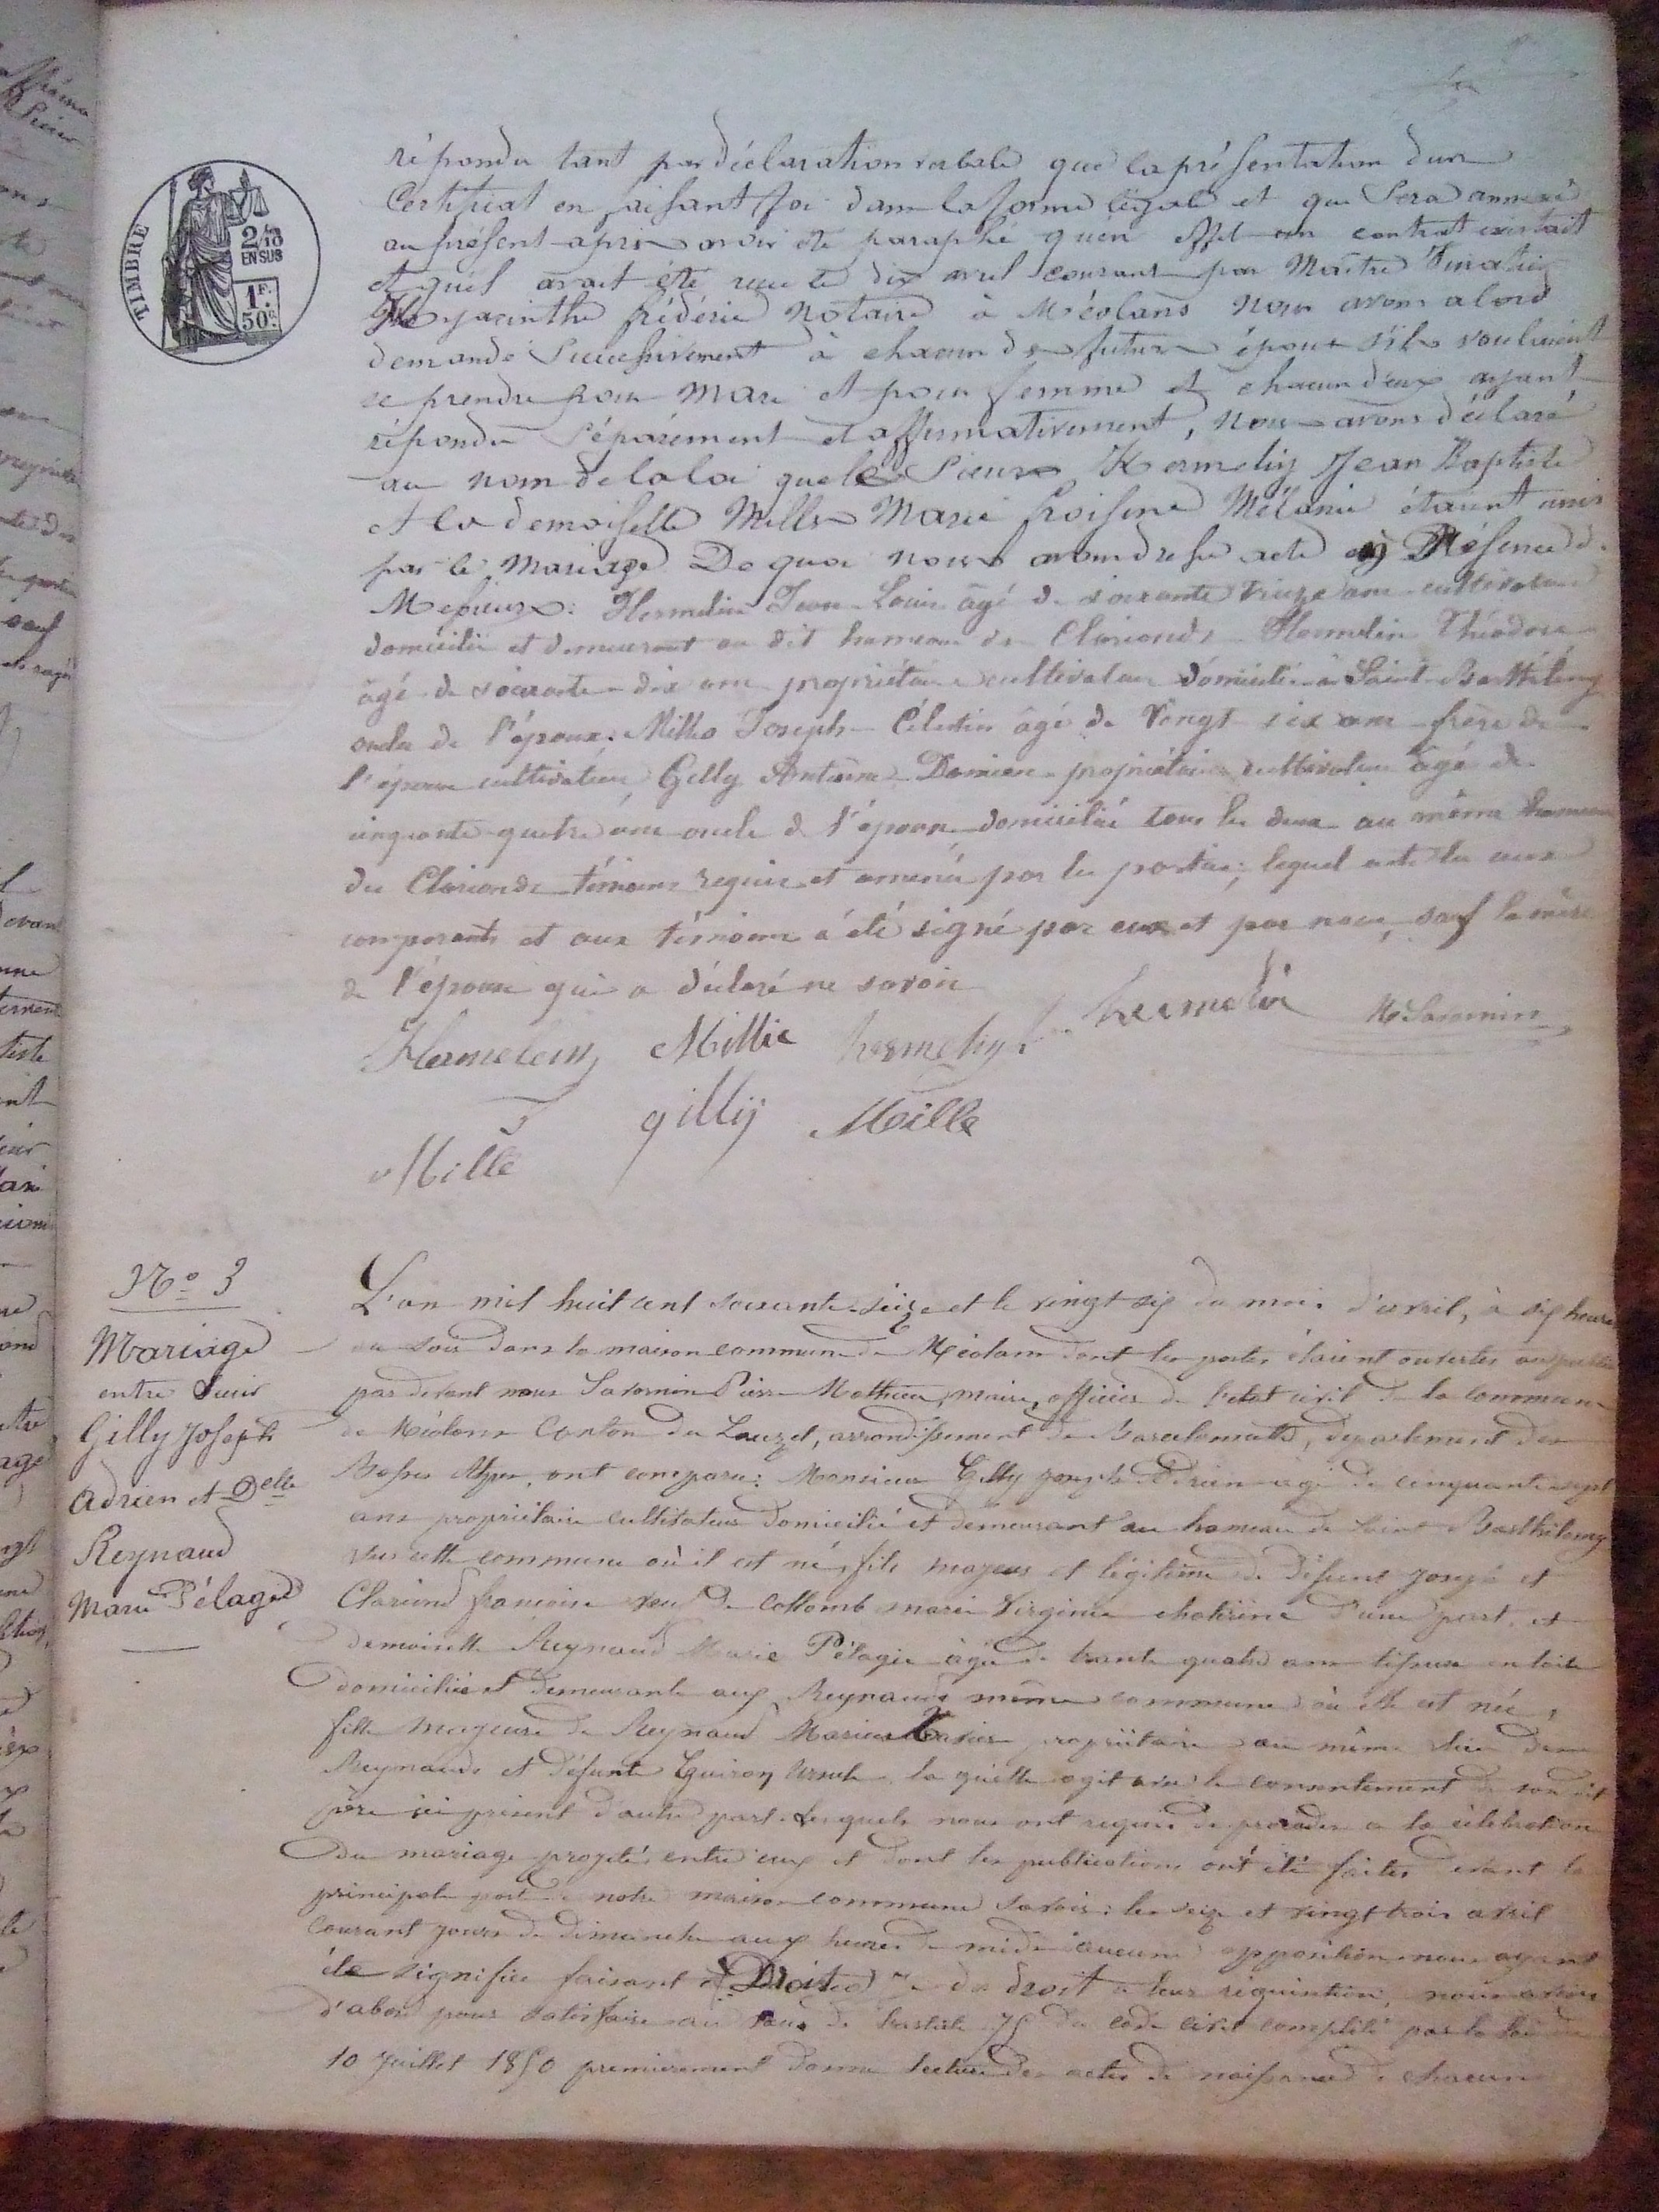 TIMBRE
2/10
EN SUS
1F.
50c.
répondu tant par déclaration verbale que la présentation d'un
Certificat en faisant foi dans la forme légale et qui Sera annexé
au présent après avoir été paraphé quen effet un contrat existait
et qu'il avait été reçu le dix avril courant par Maître
Hyacinthe frédéric Notaire à Méolans Nous avons alors
demandé Successivement à chacun des futurs époux s'ils voulaient
se prendre pour Mari et pour femme et chacun d'eux ayant
répondu Séparément et affirmativement, Nous avons déclaré
au nom de la loi que le Sieur Hermelin Jean Baptiste
et la demoiselle Mille Marie Mélanie étaient unis
par le Mariage De quoi nous avons dressé acte en Présence de
Messieurs: Hermelin Jean Louis âgé de soixante treize ans cultivateur
domicilié et demeurant au dit hameau des Clarionds Hermelin Théodore
âgé de soixante-dix ans propriétaire cultivateur domicilié à Saint-Barthélemy
oncles de l'époux; Mille Joseph-Célestin âgé de Vingt six ans frère de
l'épouse cultivateur, Gilly Antoine Damien propriétaire cultivateur âgé de
cinquante-quatre ans oncle de l'épouse domiciliés tous les deux au même hameau
des Clarionds témoins requis et amenés par les parties; lequel acte lu aux
comparants et aux témoins a été signé par eux et par nous, sauf la mère
de l'épouse qui a déclaré ne savoir
Hermelin Mille hermelin hermelin Savornin
gilly Mille
Mille
No 3
Mariage
entre Sieur
Gilly Joseph
Adrien et Delle
Reynaud
Marie Pélagie
L'an mil huit cent soixante-seize et le vingt six du mois d'avril, à six heures
du soir dans la maison commune de Méolans dont les portes étaient ouvertes au public
par devant nous Savornin Pierre Mathieu, maire, officier de l'état civil de la commune
de Méolans Canton du Lauzet, arrondissement de Barcelonnette, département des
Basses Alpes, ont comparu: Monsieur Gilly Joseph Adrien âgé de cinquante sept
ans propriétaire cultivateur domicilié et demeurant au hameau de Saint Barthélemy
sur cette commune où il est né, fils majeur et légitime de défunts Joseph et
Clariond françoise veuf de Collomb marie Virginie chatérine d'une part, et
demoiselle Reynaud Marie Pélagie âgée de trente quatre ans tisseuse en toile
domiciliée et demeurante aux Reynauds même commune où elle est née,
fille majeure de Reynaud Marius propriétaire au même lieu des
Reynauds et défunte Ursule la quelle agit avec le consentement de son dit
père ici présent d'autre part. Lesquels nous ont requis de procéder à la célébration
du mariage projeté entre eux et dont les publications ont été faites devant la
principale porte de notre maison commune savoir: les seize et vingt trois avril
courant jours de dimanche aux heures de midi aucune opposition nous ayant
été signifiée faisant Droit à leur réquisition, nous avons
d'abord pour satisfaire au vœu de l'article 75 du code civil complété par la loi du
10 Juillet 1850 premièrement donné lecture des actes de naissance de chacun